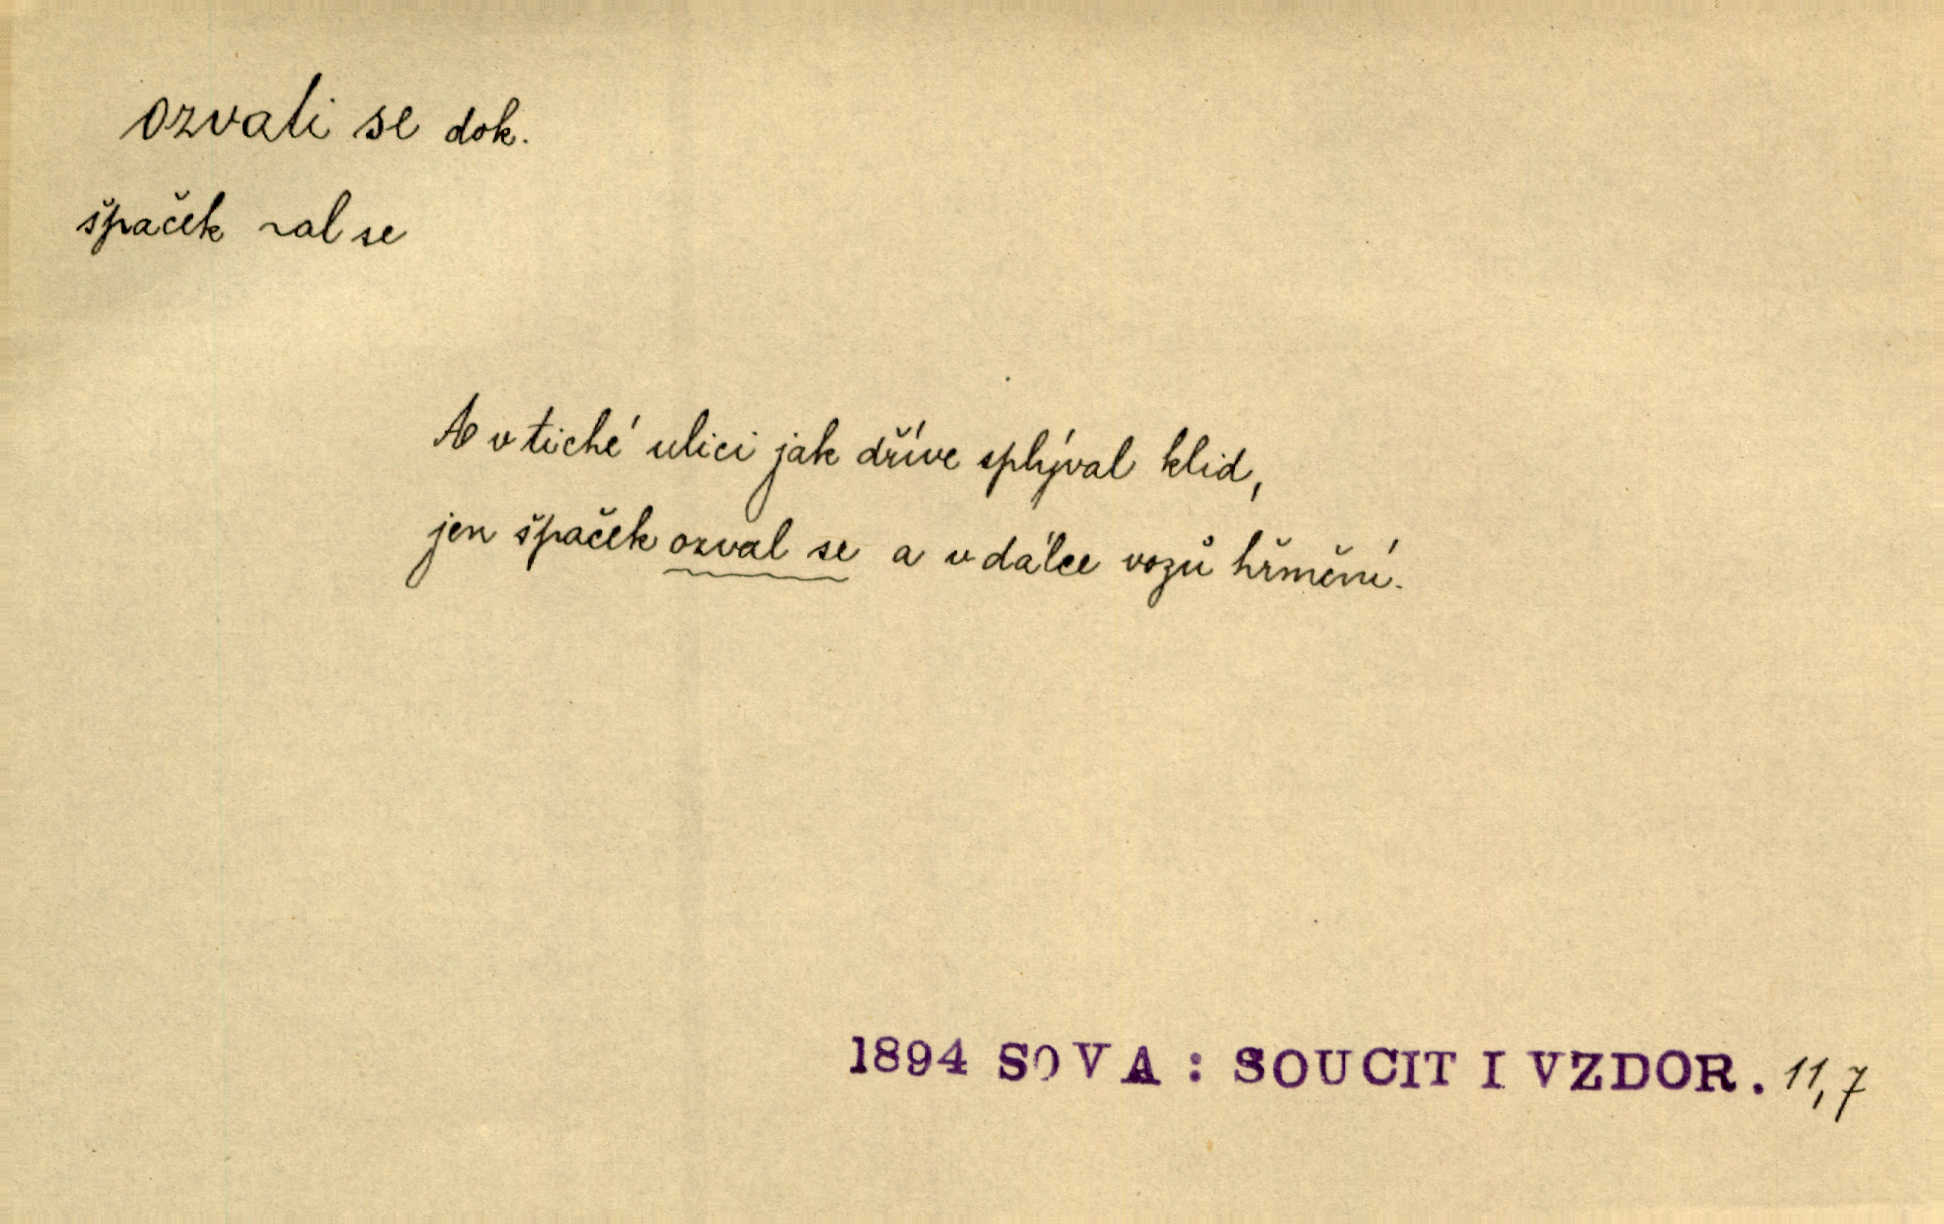 ozvati se dok.
špaček ~al se
A v tiché ulici jak dříve splýval klid,
jen špaček ozval se a v dálce vozů hřmění.
1894 SOVA : SOUCIT I VZDOR. 11,7